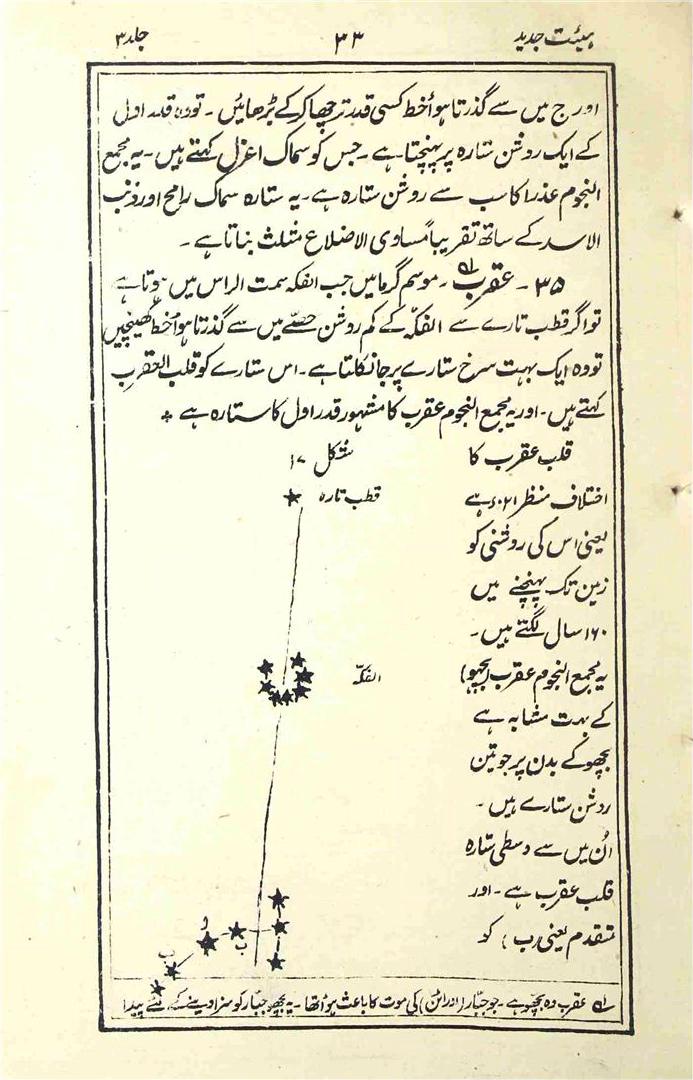 ہیئت جدید ۳۳ جلد ۳
اور ج میں سے گذرتا ہوأ خط کسی قدر ترچھا کرکے بڑھائیں ۔ تو وہ قدر اول
کے ایک روشن ستارہ پر پہنچتا ہے ۔ جس کو سماک اعزل کہتے ہیں ۔ یہ مجمع
النجوم عذرا کا سب سے روشن ستارہ ہے ۔ یہ ستارہ سماک رامح اور ذنب
الاسد کے ساتھ تقریباً مساوی الاضلاع مثلث بناتا ہے ۔
۳۵ ۔ عقرب ۔ موسم گرما میں جب الفکہ سمت الراس میں ہوتا ہے
تو اگر قطب تارے سے الفکہّ کے کم روشن حصّے میں سے گذرتا ہوأ خط کھینچیں
تو وہ ایک بہت سرخ ستارے پر جا نکلتا ہے ۔ اس ستارے کو قلب العقرب
کہتے ہیں ۔ اور یہ مجمع النجوم عقرب کا مشہور قدر اول کا ستارہ ہے ٭
قلب عقرب کا
اختلاف منظر ۰۲۱ء ہے
یعنی اس کی روشنی کو
زمین تک پہنچنے میں
۱۶۰ سال لگتے ہیں ۔
یہ مجمع النجوم عقرب (بچھو)
کے بہت مشابہ ہے
بچھو کے بدن پر جو تین
روشن ستارے ہیں ۔
اُن میں سے وسطی ستارہ
قلب عقرب ہے ۔ اور
متقدم یعنی (ب) کو
شکل ۱۷
قطب تارہ
الفکہّ
ب
د
عقرب وہ بچھو ہے ۔ جو جبّار (اورائن) کی موت کا باعث ہوأ تھا ۔ یہ بچھو جبّار کو سزا دینے کے لئے پیدا